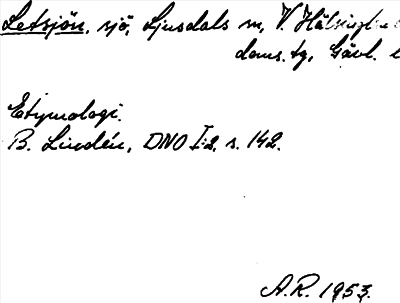 Letsjön, sjö, Ljusdals sn, V. Hälsingl
doms. tg, Gävl. l
Etymologi.
B. Lindén, DNO I:2, s. 142.
A.R. 1953.